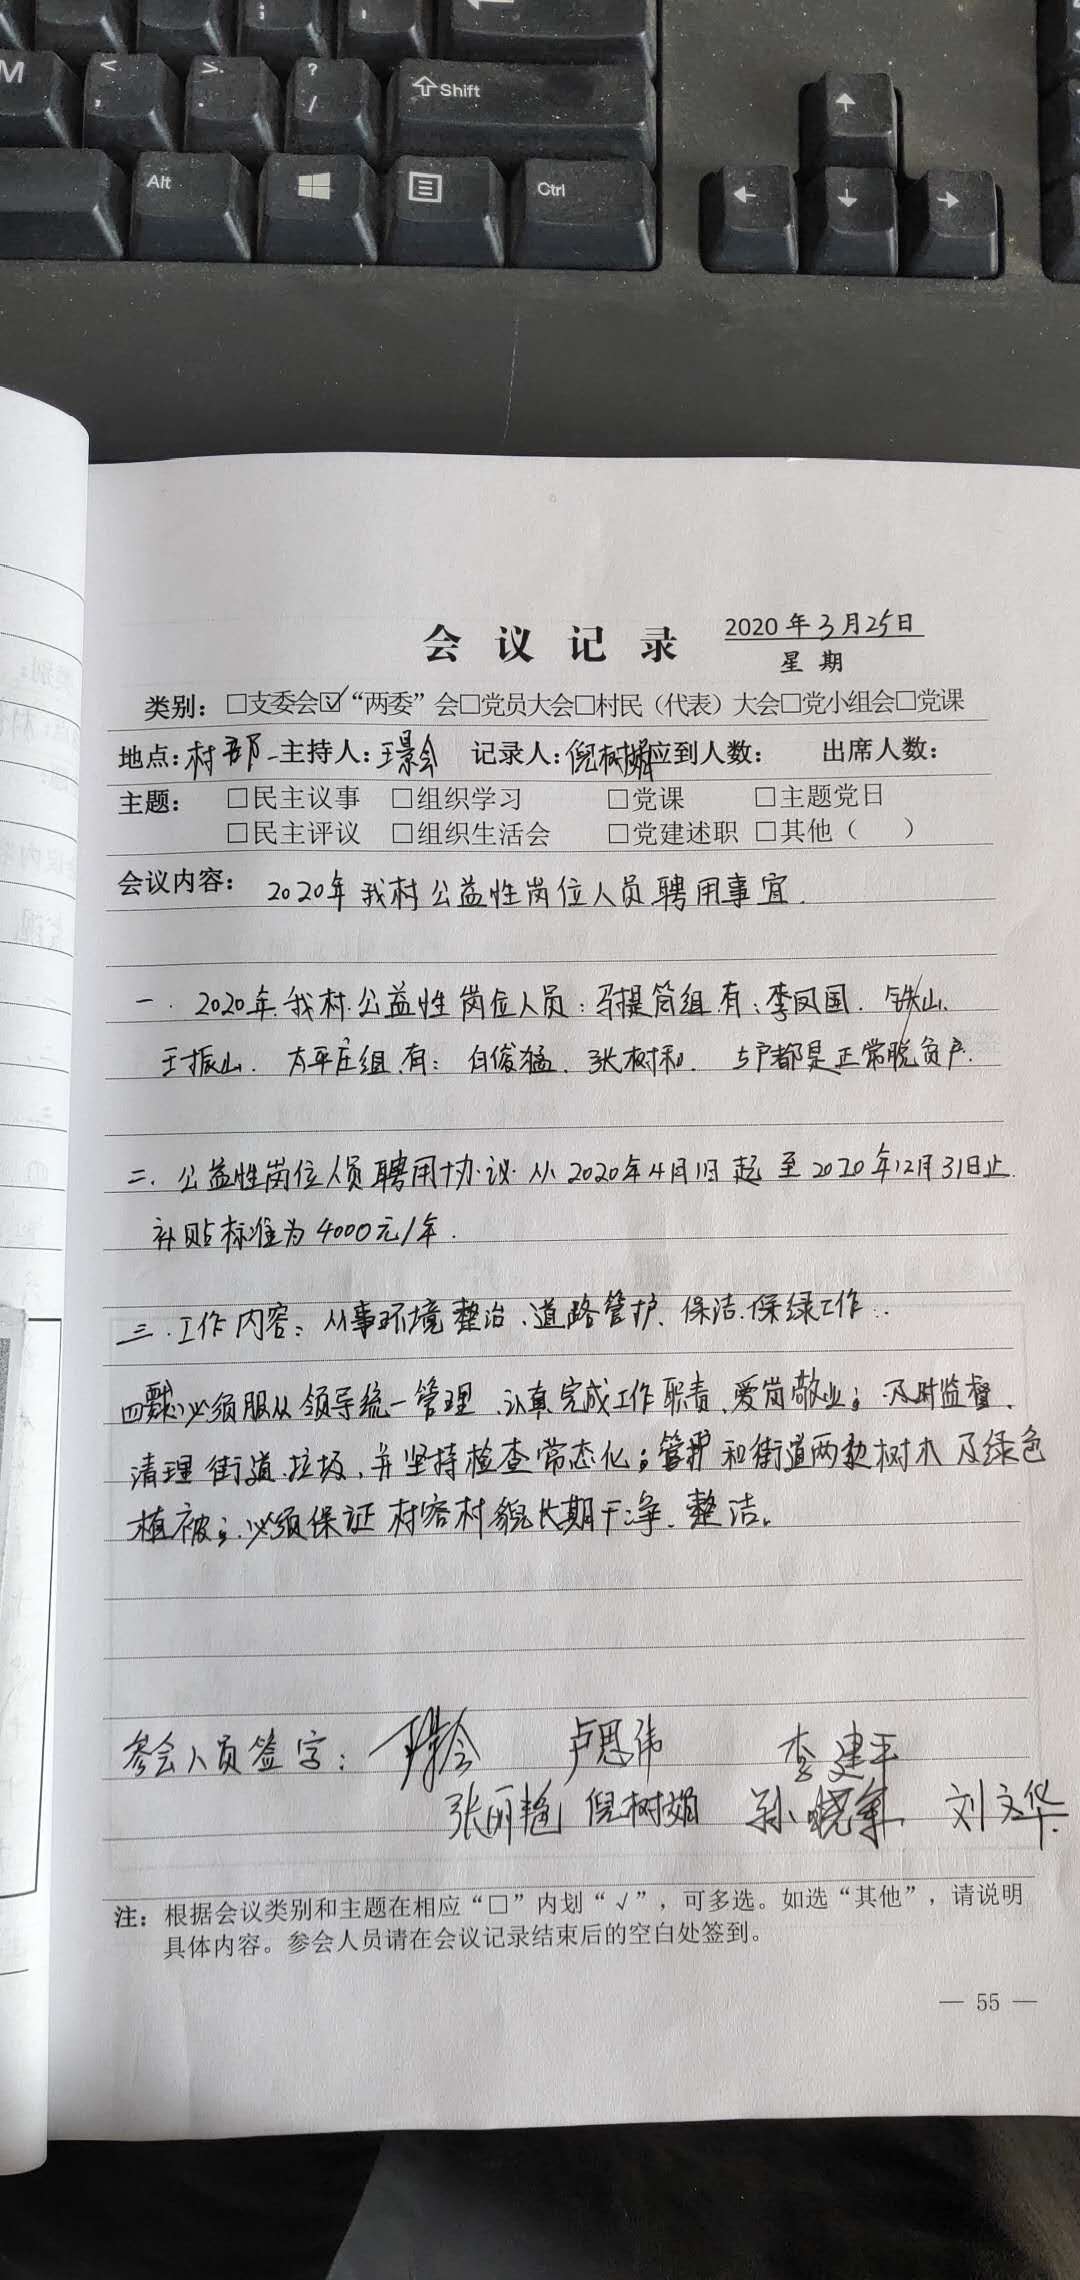 M < , > . ? / Shift
Alt Ctrl
会议记录 2020年3月25日
星期
类别：□支委会☑“两委”会□党员大会□村民（代表）大会□党小组会□党课
地点：村部 主持人：王景会 记录人：倪树娟 应到人数： 出席人数：
主题： □民主议事 □组织学习 □党课 □主题党日
□民主评议 □组织生活会 □党建述职 □其他（ ）
会议内容： 2020年我村公益性岗位人员聘用事宜.
一. 2020年我村公益性岗位人员：马提筒组有：李凤国. 铁山.
王振山. 太平庄组有：白俊猛. 张树和. 5户都是正常脱贫户.
二. 公益性岗位人员聘用协议从2020年4月1日起至2020年12月31日止.
补贴标准为4000元/年.
三. 工作内容：从事环境整治、道路管护、保洁.保绿工作.
四 必须服从领导统一管理、认真完成工作职责、爱岗敬业；及时监督、
清理街道垃圾、并坚持检查常态化；管护和街道两边树木及绿色
植被；必须保证村容村貌长期干净、整洁。
参会人员签字： 王景会 卢思伟 李建平
张丽艳 倪树娟 孙晓军 刘文华
注：根据会议类别和主题在相应“□”内划“√”，可多选。如选“其他”，请说明
具体内容。参会人员请在会议记录结束后的空白处签到。
— 55 —